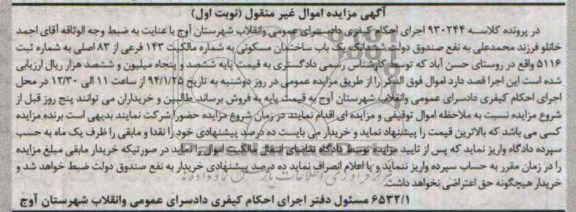 آگهی مزایده اموال غیر منقول (نوبت اول)
در پرونده کلاسه ۹۳۰۲۴۴ اجرای احکام کیفری دادسرای عمومی وانقلاب شهرستان آوج با عنایت به ضبط وجه الوثاقه آقای احمد
خانلو فرزند محمدعلی به نفع صندوق دولت شش دانگ یک باب ساختمان مسکونی به شماره مالکیت ۱۴۳ فرعی از ۸۳ اصلی به شماره ثبت
۵۱۱۶ واقع در روستای حسن آباد که توسط کارشناس رسمی دادگستری به قیمت پایه ششصد و پنجاه میلیون و ششصد هزار ریال ارزیابی
شده است این اجرا قصد دارد اموال فوق الذکر را از طریق مزایده عمومی در روز دوشنبه به تاریخ ۹۴/۱/۲۵ از ساعت ۱۱ الی ۱۲/۳۰ در محل
اجرای احکام کیفری دادسرای عمومی وانقلاب شهرستان آوج به قیمت پایه به فروش برساند طالبین و خریداران می توانند پنج روز قبل از
شروع مزایده نسبت به ملاحظه اموال توقیفی و مزایده ای اقدام نمایند در زمان شروع مزایده حضور/شرکت نمایند بدیهی است برنده مزایده
کسی می باشد که بالاترین قیمت را پیشنهاد نماید و خریدار می بایست ده درصد پیشنهادی خود را نقدا و مابقی را ظرف یک ماه به حسب
سپرده دادگاه واریز نماید که پس از تایید مزایده توسط دادگاه تقاضای انتقال مالکیت اموال را نماید در صورتیکه خریدار مابقی مبلغ مزایده
را در زمان مقرر به حساب سپرده واریز ننماید و یا اعلام انصراف نماید ده درصد پیشنهادی خریدار به نفع صندوق دولت ضبط خواهد شد و
خریدار هیچگونه حق اعتراضی نخواهد داشت.
۶۵۳۲/۱ مسئول دفتر اجرای احکام کیفری دادسرای عمومی وانقلاب شهرستان آوج